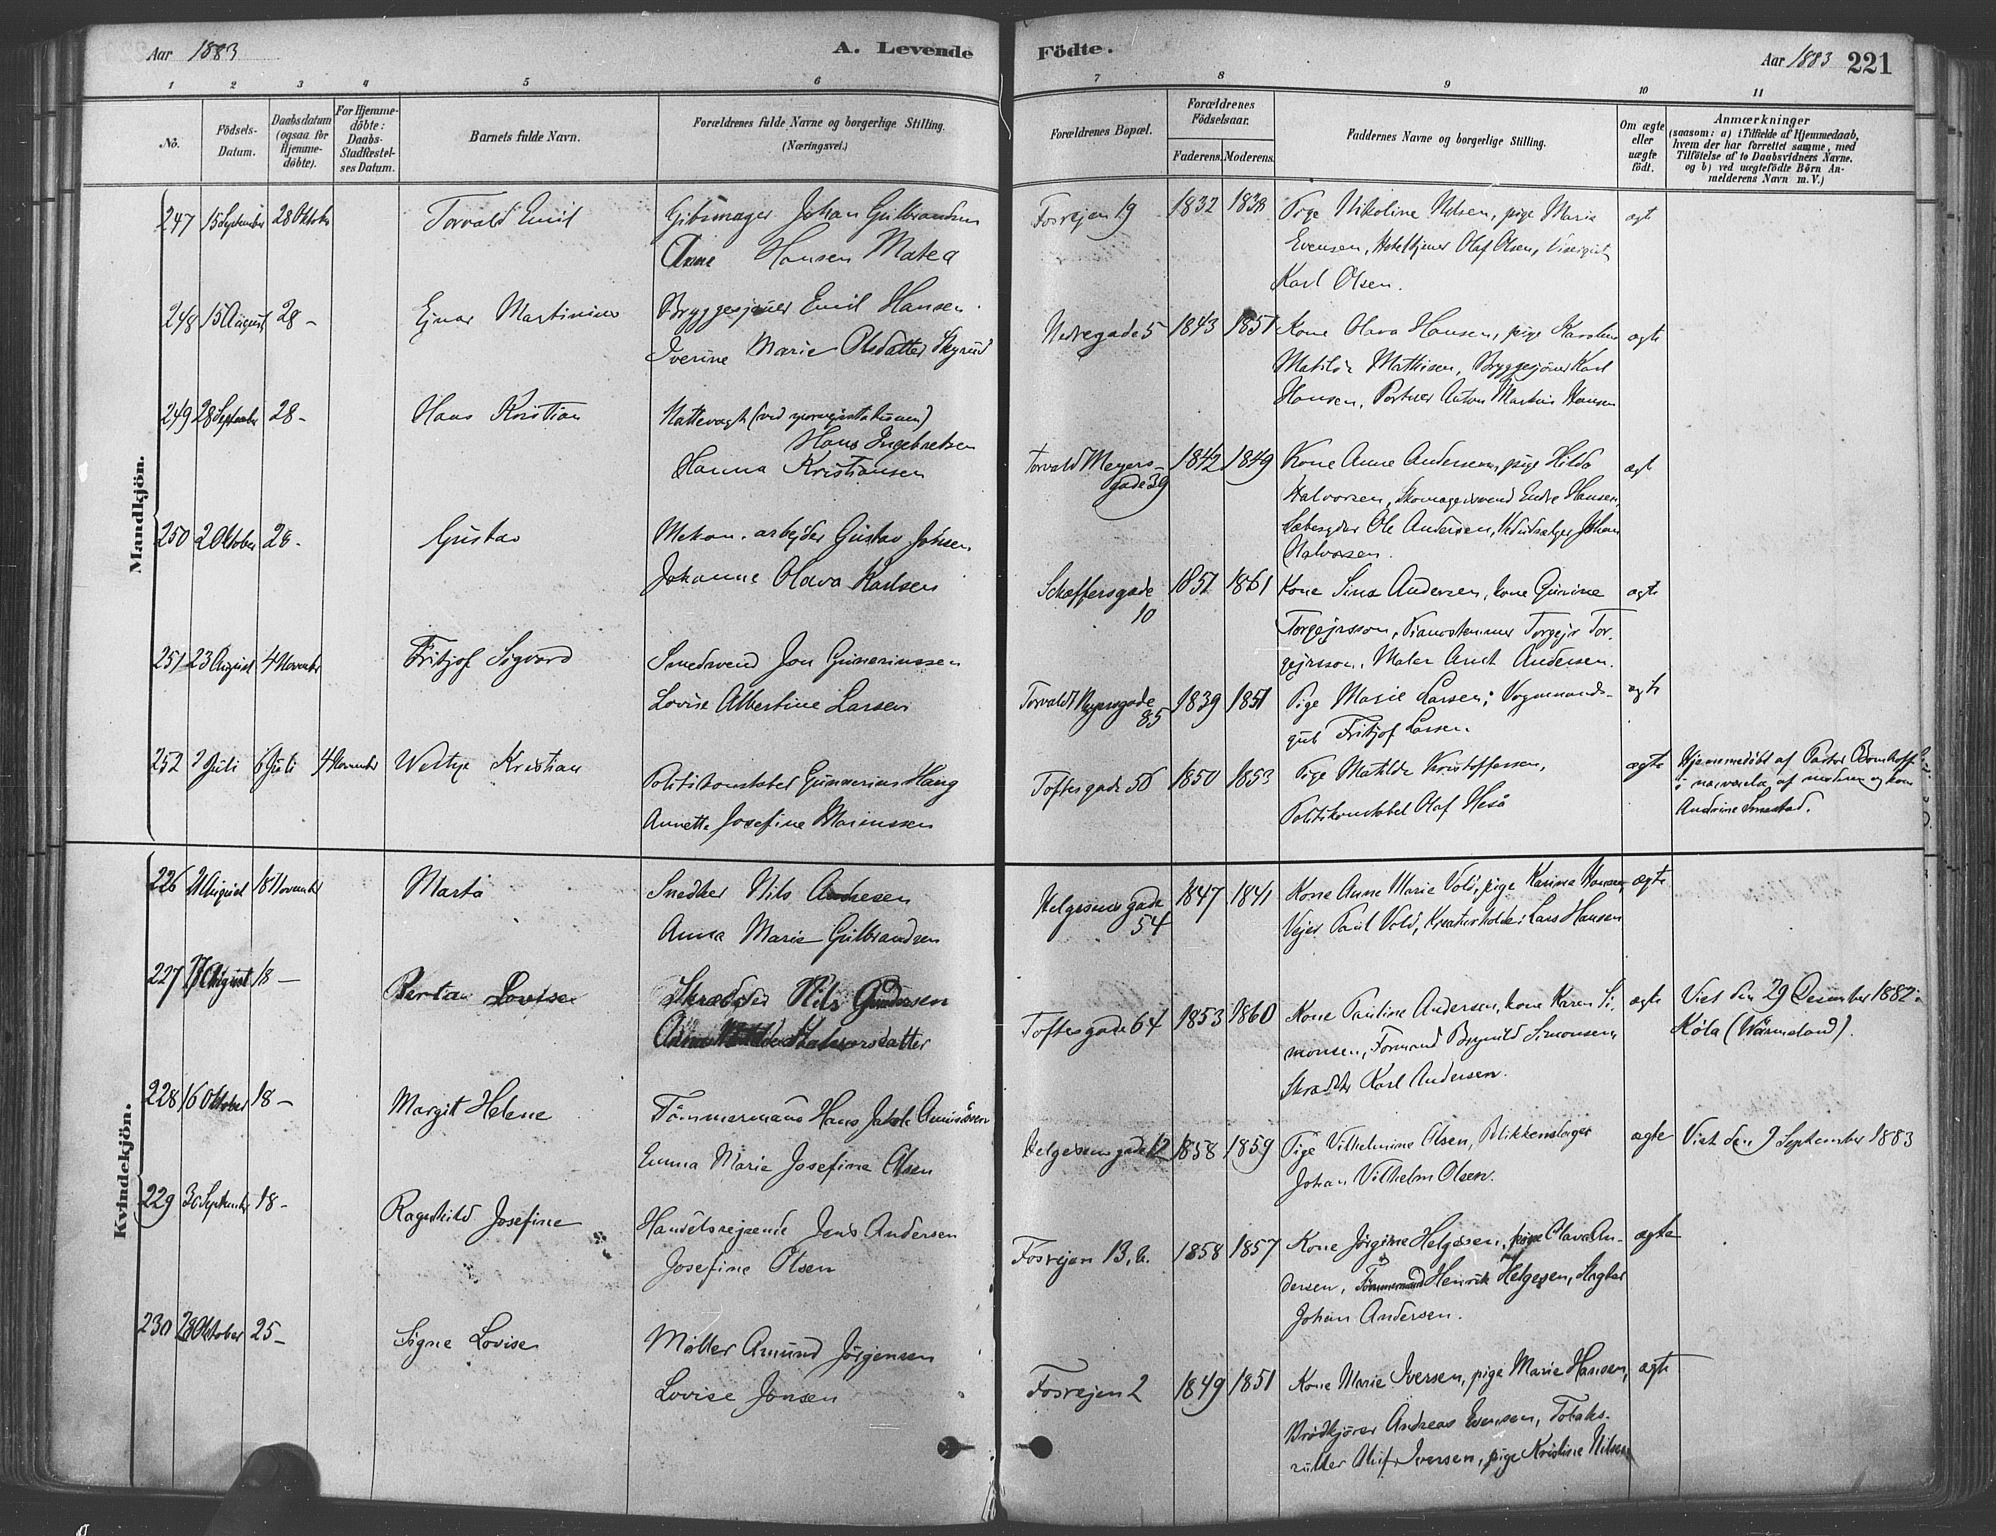 Aar 1883
A. Levende
Födte.
Aar 1883
221
1 2 3 4 5 6 7 8 9 10 11
No.
Födsels-
Datum.
Daabsdatum
(ogsaa for
Hjemme-
döbte).
For Hjemme-
döbte:
Daabs-
Stadfæstel-
ses Datum.
Barnets fulde Navn.
Forældrenes fulde Navne og borgerlige Stilling.
(Næringsvei.)
Forældrenes Bopæl.
Forældrenes
Födselsaar.
Faderens. Moderens.
Faddernes Navne og borgerlige Stilling.
Om ægte
eller
uægte
födt.
Anmærkninger
(saasom: a) i Tilfælde af Hjemmedaab,
hvem der har forrettet samme, med
Tilföielse af to Daabsvidners Navne.
og b) ved uægtefödte Börn An-
melderens Navn m. V.)
Mandkjön.
247 15 September 28 Oktober Torvald Emil Gibsmager Johan Gulbrandsen
Anne Hansen Matea
Fosvejen 19 1832 1838 Pige Nikoline Nilsen, pige Marie ægt
Evensen, Hoteltjener Olaf Olsen, Visergut
Karl Olsen.
248 15 August 28 - Ejnar Martinius Bryggesjouer Emil Hansen
Iverine Marie Olsdatter
Nedregade 5 1843 1851 Kone Olava Hansen, pige Karoline ægte
Matilde Mathisen, Bryggesjouer Karl
Hansen, Portner Anton Markus Hansen
249 28 September 28 - Hans Kristian Nattevagt (ved
Hans Ingebretsen
Hanna Kristiansen
Torvald Meyers-
gade 39 1842 1849 Kone Anne Andersen, pige Hilda ægt
Halvorsen, Skomagersvend Endre Hansen
Ole Andersen, Johan
Halvorsen.
250 2 Oktober 28 - Gustav Mekan. arbejder Gustav Johnsen
Johanne Olava Karlsen
Schæffersgade
10 1851 1861 Kone Sina Andersen, kone Gunine ægte
Torgejrsson, Pianostemmer Torgejr Tor-
gejrsson, Maler Arnt Andersen.
251 23 August 4 November Fritjof Sigvard Smedsvend Jon Gunerinssen
Lovise Albertine Larsen
Torvald Meyersgade
85 1839 1851 Pige Marie Larsen; Vognmands- ægte
gut Fritjof Larsen
252 Juli 6 Juli 4 November Kristian
Politikonstabel Gunnerius Haug
Annette Josefine Marinussen
Toftesgade 56 1850 1853 Pige Matilde Kristoffersen, ægte
Politikonstabel Olaf
Hjemmedöbt af Pastor
i nærværelse af modern og kone
Andrine Smestad.
Kvindekjön.
226 21 August 18 November Marta Snedker Nils Andresen
Anna Marie Gulbrandsen
Helgesens gade
54 1847 1841 Kone Anne Marie Vold, pige Karina Hansen ægte
Vejer Paul Vold, Kreaturholder Lars Hansen
227 17 August 18 - Berta Lovise Skrædder Nils Gundersen
Halvorsdatter
Toftesgade 64 1853 1860 Kone Pauline Andersen, kone Karen Si- ægte
monsen, Formand Brynild Simonsen,
Skrædder Karl Andersen.
Viet den 29 Desember 1882 i
Köla (Wärmeland).
228 16 Oktober 18 - Margit Helene Tömmermand Hans Jakob
Emma Marie Josefine Olsen
Helgesens gade 12 1858 1859 Pige Vilhelmine Olsen, Blikkenslager ægte
Johan Vilhelm Olsen.
Viet den 9 September 1883
229 30 September 18 - Ragnhild Josefine Handelsrejsende Jens Andersen
Josefine Olsen
Fosvejen 13, b. 1858 1857 Kone Jörgine Helgesen, pige Olava An- ægte
dersen, Tömmermand Henrik Helgesen, Slagter
Johan Andersen.
230 28 Oktober 25 - Signe Lovise Möller Amund Jörgensen
Lovise Jonsen
Fosvejen 2 1849 1851 Kone Marie Iversen, pige Marie Hansen, ægte
Brödkjörer Andreas Evensen, Tobaks-
ruller Iversen, pige Kristine Nilsen